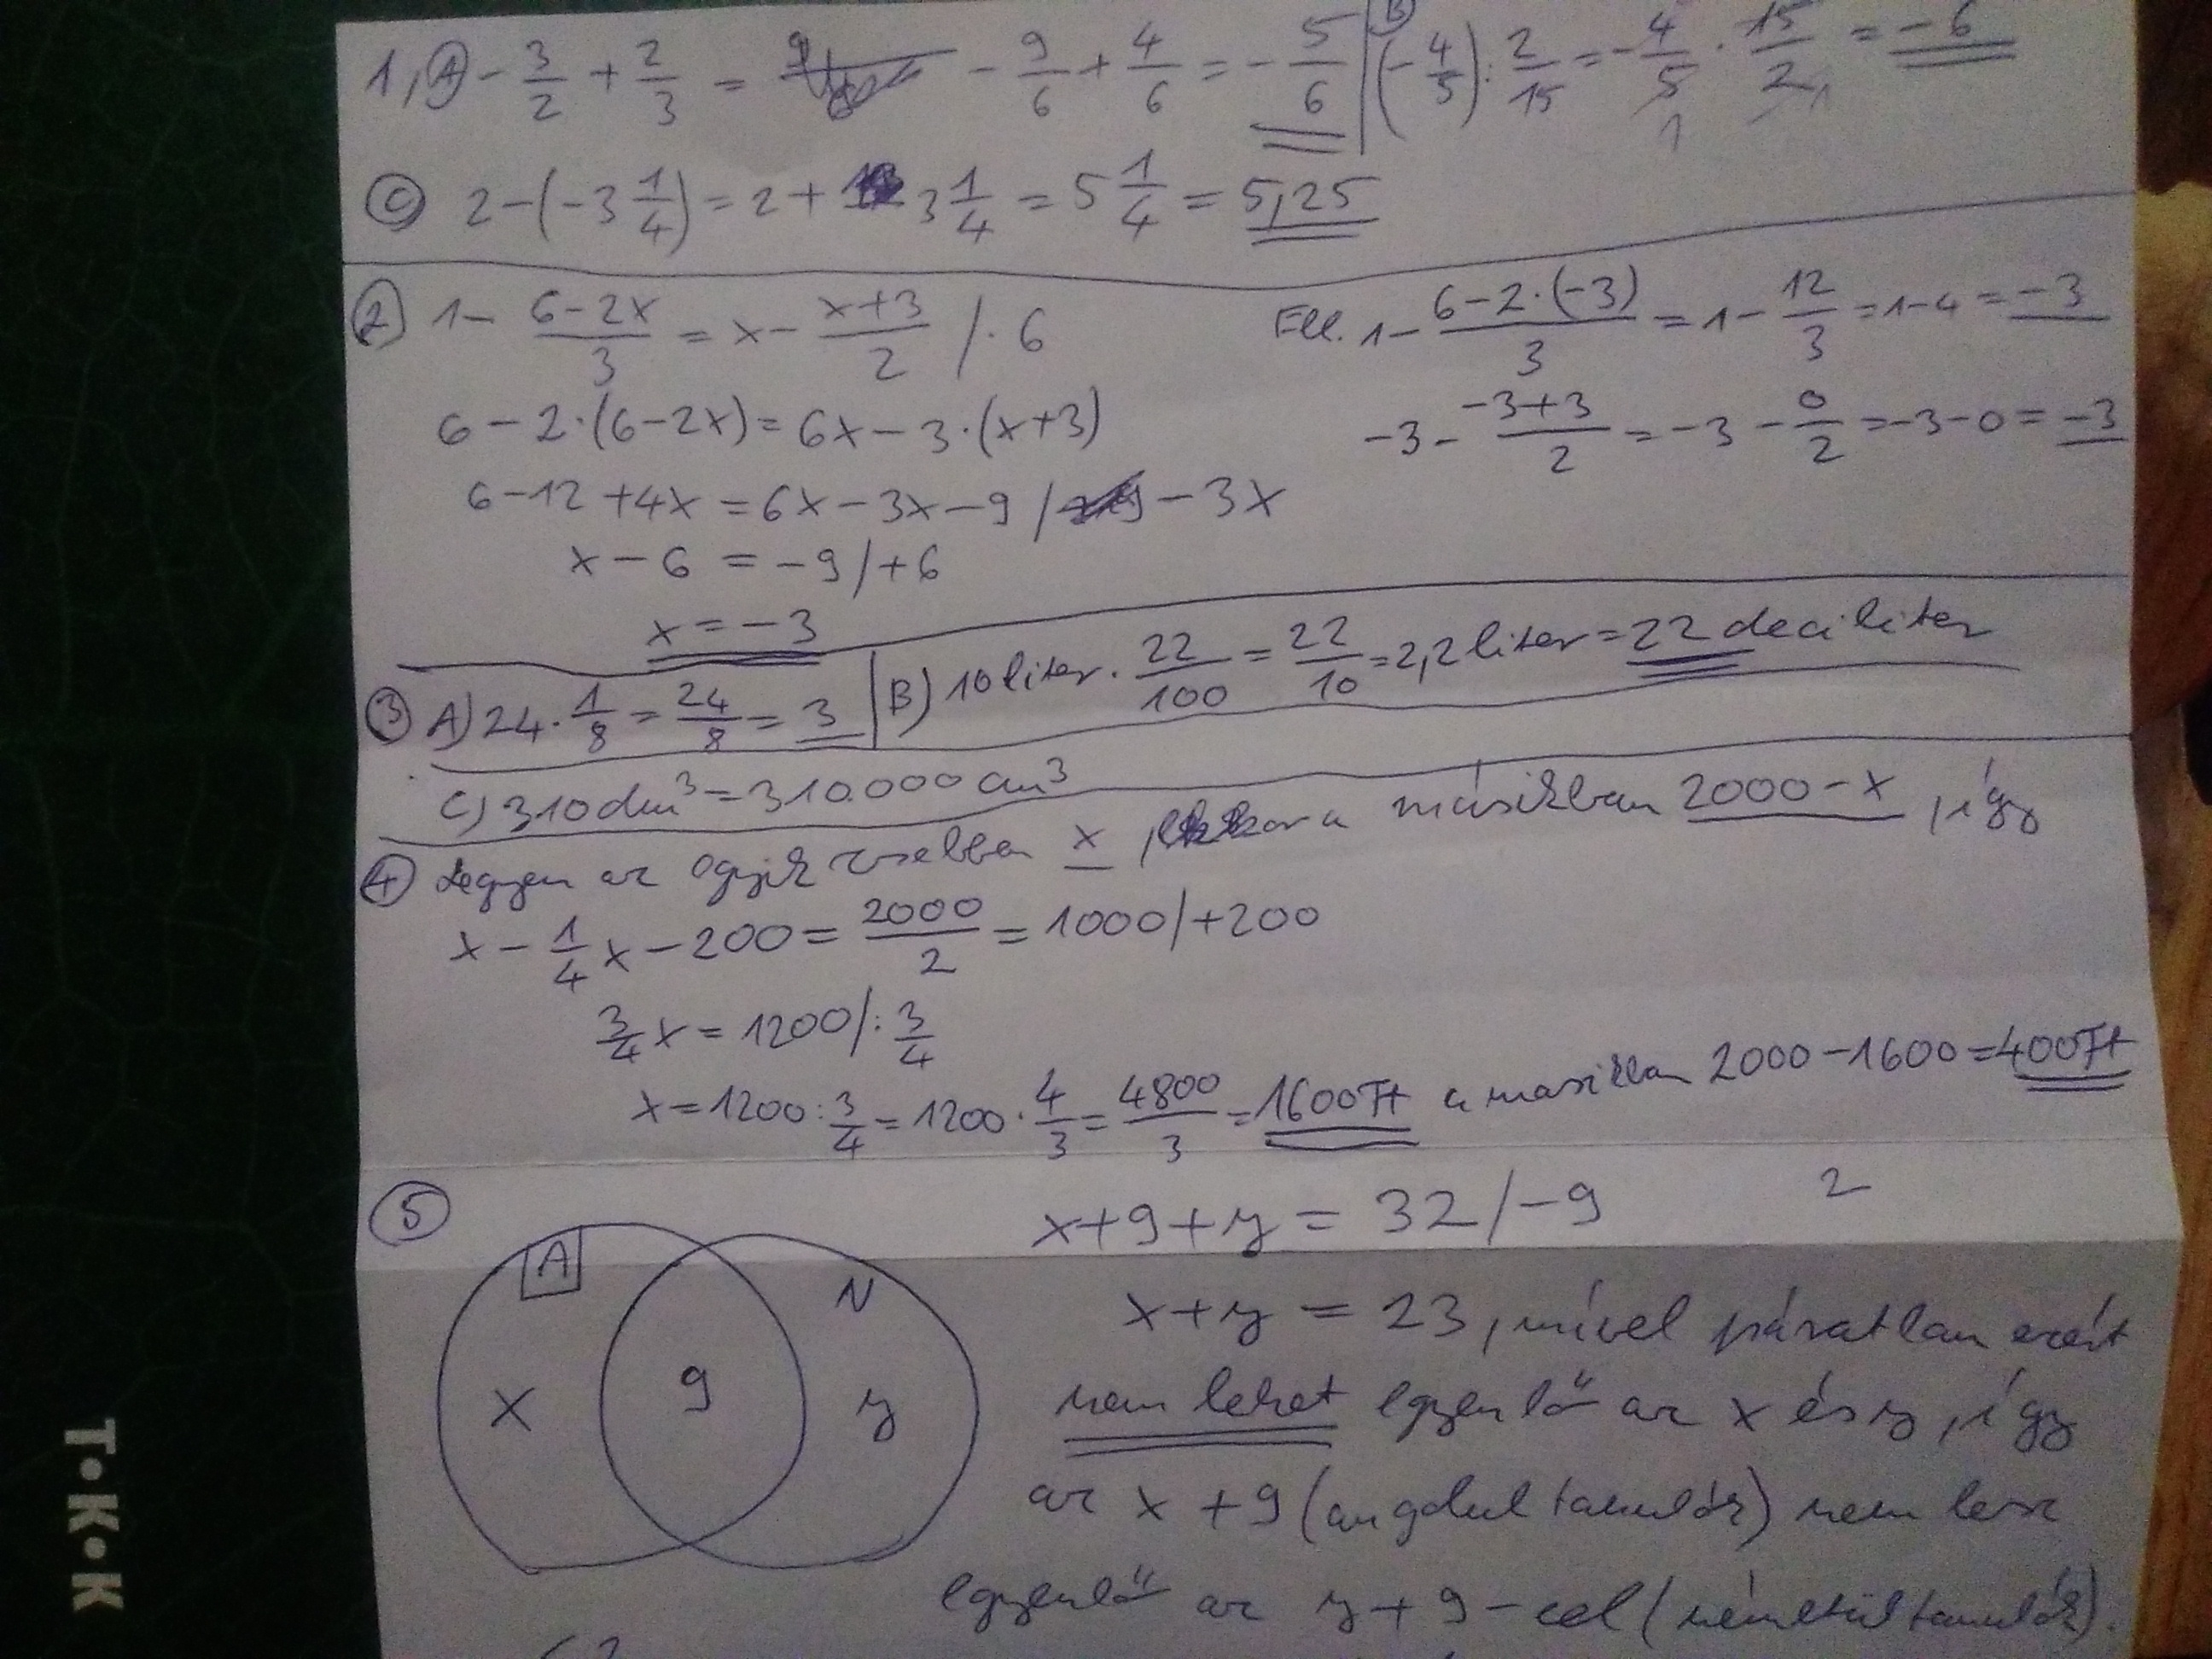 1, A) - 3/2 + 2/3 = - 9/6 + 4/6 = - 5/6 | B) (- 4/5) : 2/15 = - 4/5 · 15/2 = -6
C) 2 - (-3 1/4) = 2 + 3 1/4 = 5 1/4 = 5,25
2) 1 - (6-2x)/3 = x - (x+3)/2 /·6
Ell. 1 - (6-2·(-3))/3 = 1 - 12/3 = 1-4 = -3
6 - 2·(6-2x) = 6x - 3·(x+3)
-3 - (-3+3)/2 = -3 - 0/2 = -3-0 = -3
6 - 12 + 4x = 6x - 3x - 9 / - 3x
x - 6 = -9 /+6
x = -3
3) A) 24 · 1/8 = 24/8 = 3 | B) 10 liter · 22/100 = 22/10 = 2,2 liter = 22 deciliter
C) 310 dm³ = 310.000 cm³
4) Legyen az egyik zsebben x, a másikban 2000 - x, így
x - 1/4 x - 200 = 2000/2 = 1000 /+200
3/4 x = 1200 /: 3/4
x = 1200 : 3/4 = 1200 · 4/3 = 4800/3 = 1600 Ft a masikban 2000 - 1600 = 400 Ft
5) x + 9 + y = 32 /-9 2
A N
x + y = 23, mível páratlan ezért
x 9 y
nem lehet egyenlő az x és y, így
az x + 9 (angolul tanulók) nem lesz
egyenlő az y + 9-cel (németül tanulók).
T•K•K